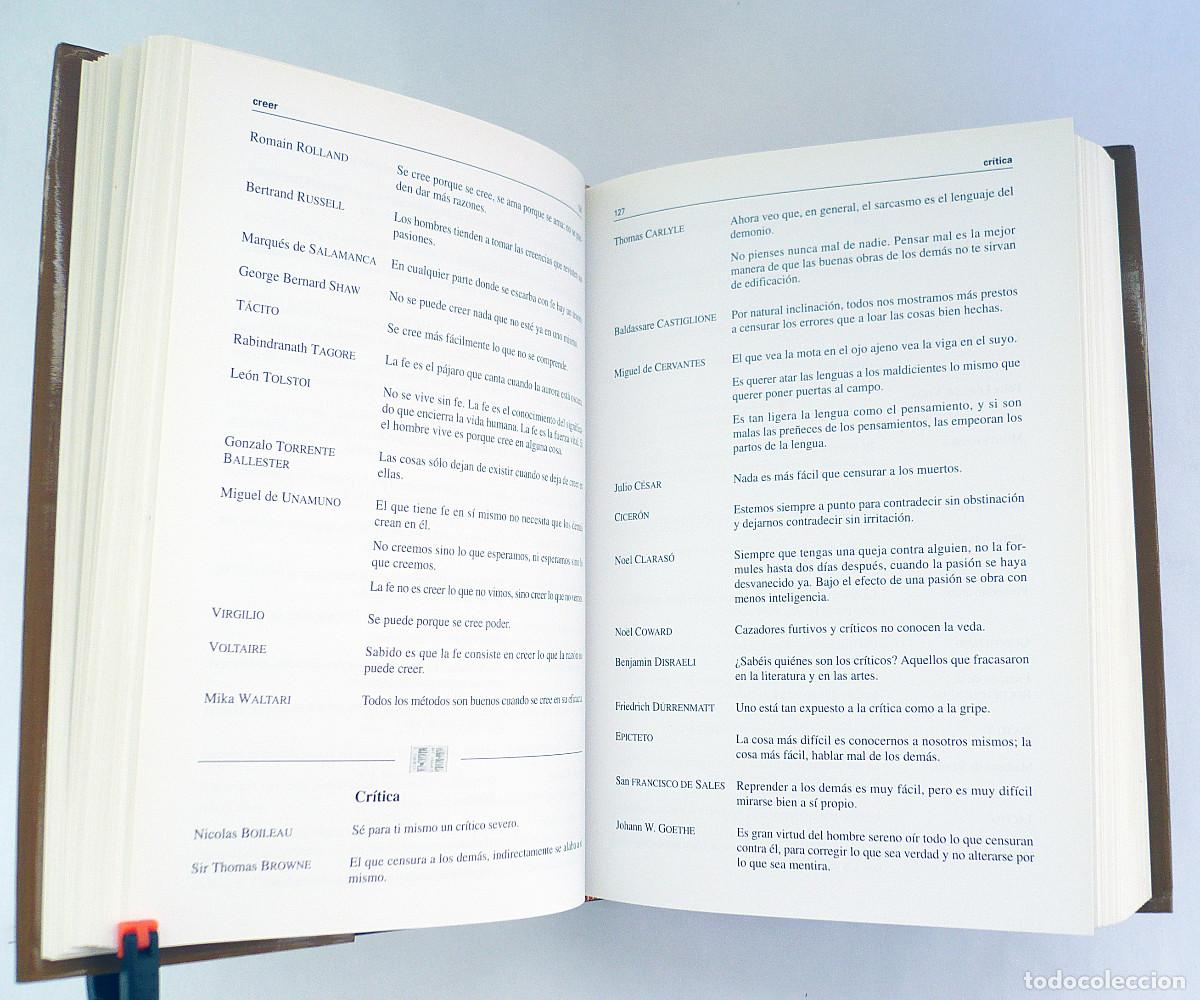 creer
Romain ROLLAND
Se cree porque se cree, se ama porque se ama; no se
den dar más razones.
Bertrand RUSSELL
Los hombres tienden a tomar las creencias que
pasiones.
Marqués de SALAMANCA
En cualquier parte donde se escarba con fe hay un
George Bernard SHAW
No se puede creer nada que no esté ya en uno mismo.
TÁCITO
Se cree más fácilmente lo que no se comprende.
Rabindranath TAGORE
La fe es el pájaro que canta cuando la aurora está
León TOLSTOI
No se vive sin fe. La fe es el conocimiento del
do que encierra la vida humana. La fe es la fuerza vital. Si
el hombre vive es porque cree en alguna cosa.
Gonzalo TORRENTE
BALLESTER
Las cosas sólo dejan de existir cuando se deja de creer en
ellas.
Miguel de UNAMUNO
El que tiene fe en sí mismo no necesita que los
crean en él.
No creemos sino lo que esperamos, ni esperamos sino lo
que creemos.
La fe no es creer lo que no vimos, sino creer lo que no vemos.
VIRGILIO
Se puede porque se cree poder.
VOLTAIRE
Sabido es que la fe consiste en creer lo que la razón no
puede creer.
Mika WALTARI
Todos los métodos son buenos cuando se cree en su eficacia.
Crítica
Nicolas BOILEAU
Sé para ti mismo un crítico severo.
Sir Thomas BROWNE
El que censura a los demás, indirectamente se alaba a sí
mismo.
crítica
127
Thomas CARLYLE
Ahora veo que, en general, el sarcasmo es el lenguaje del
demonio.
No pienses nunca mal de nadie. Pensar mal es la mejor
manera de que las buenas obras de los demás no te sirvan
de edificación.
Baldassare CASTIGLIONE
Por natural inclinación, todos nos mostramos más prestos
a censurar los errores que a loar las cosas bien hechas.
Miguel de CERVANTES
El que vea la mota en el ojo ajeno vea la viga en el suyo.
Es querer atar las lenguas a los maldicientes lo mismo que
querer poner puertas al campo.
Es tan ligera la lengua como el pensamiento, y si son
malas las preñeces de los pensamientos, las empeoran los
partos de la lengua.
Julio CÉSAR
Nada es más fácil que censurar a los muertos.
CICERÓN
Estemos siempre a punto para contradecir sin obstinación
y dejarnos contradecir sin irritación.
Noel CLARASÓ
Siempre que tengas una queja contra alguien, no la for-
mules hasta dos días después, cuando la pasión se haya
desvanecido ya. Bajo el efecto de una pasión se obra con
menos inteligencia.
Noël COWARD
Cazadores furtivos y críticos no conocen la veda.
Benjamin DISRAELI
¿Sabéis quiénes son los críticos? Aquellos que fracasaron
en la literatura y en las artes.
Friedrich DÜRRENMATT
Uno está tan expuesto a la crítica como a la gripe.
EPICTETO
La cosa más difícil es conocernos a nosotros mismos; la
cosa más fácil, hablar mal de los demás.
San FRANCISCO DE SALES
Reprender a los demás es muy fácil, pero es muy difícil
mirarse bien a sí propio.
Johann W. GOETHE
Es gran virtud del hombre sereno oír todo lo que censuran
contra él, para corregir lo que sea verdad y no alterarse por
lo que sea mentira.
todocoleccion